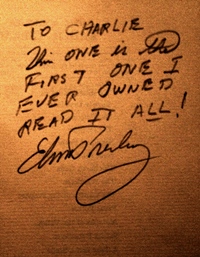 TO CHARLIE
This ONE is the
FIRST ONE I
EVER OWNED
READ IT ALL!
Elvis Presley